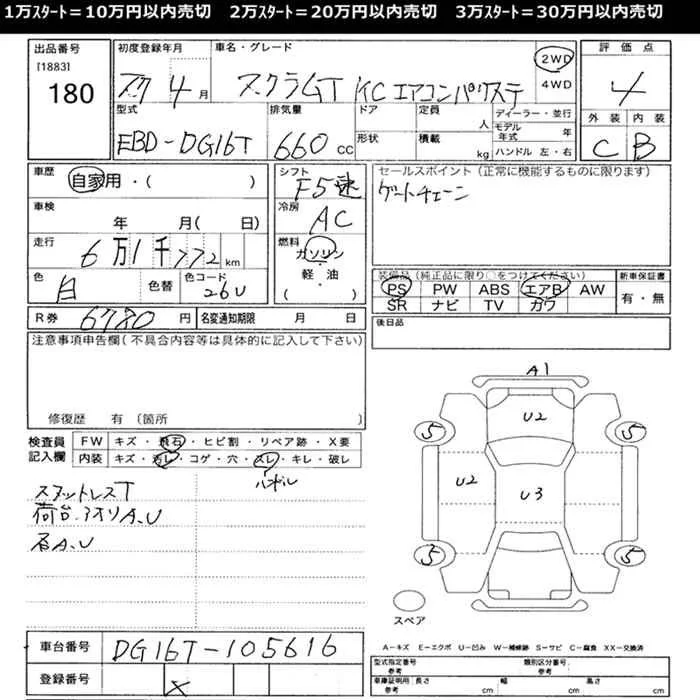 1万ｽﾀｰﾄ＝10万円以内売切　2万ｽﾀｰﾄ＝20万円以内売切　3万ｽﾀｰﾄ＝30万円以内売切
出品番号 初度登録年月 車名・グレード 評価点
[1883]
180 4月 スクラムT KC エアコンパワステ 2WD 4WD 4
外装 内装
型式 排気量 ドア 定員 人 ディーラー・並行
EBD-DG16T 660 CC 形状 積載 kg モデル年式 年 ハンドル 左・右 C B
車歴 自家用・( ) シフト F5速 セールスポイント（正常に機能するものに限ります）
車検 年 月( 日) 冷房 AC ゲートチェーン
走行 6万1千772km 燃料 ガソリン
軽・油
( )
色 白 色替 色コード 26U
装備品（純正品に限り○をつけてください） 新車保証書
PS PW ABS エアB AW 有・無
SR ナビ TV カワ
R券 6780円 名変通知期限 月 日 後日品
注意事項申告欄(不具合内容等は具体的に記入して下さい)
修復歴 有 (箇所 )
検査員記入欄 FW キズ・飛石・ヒビ割・リペア跡・X要
内装 キズ・汚レ・コゲ・穴・スレ・キレ・破レ
ハンドル
スタットレスT
荷台.アオリA.U
右A.U
A1
U2
5 5
U2
U3
5 5
スペア
車台番号 DG16T-105616
登録番号 X
A-キズ E-エクボ U-凹み W-補修跡 S-サビ C-腐食 XX-交換済
型式指定番号 参考 類別区分番号 参考
車庫証明用 参考 長さ cm 幅 cm 高さ cm